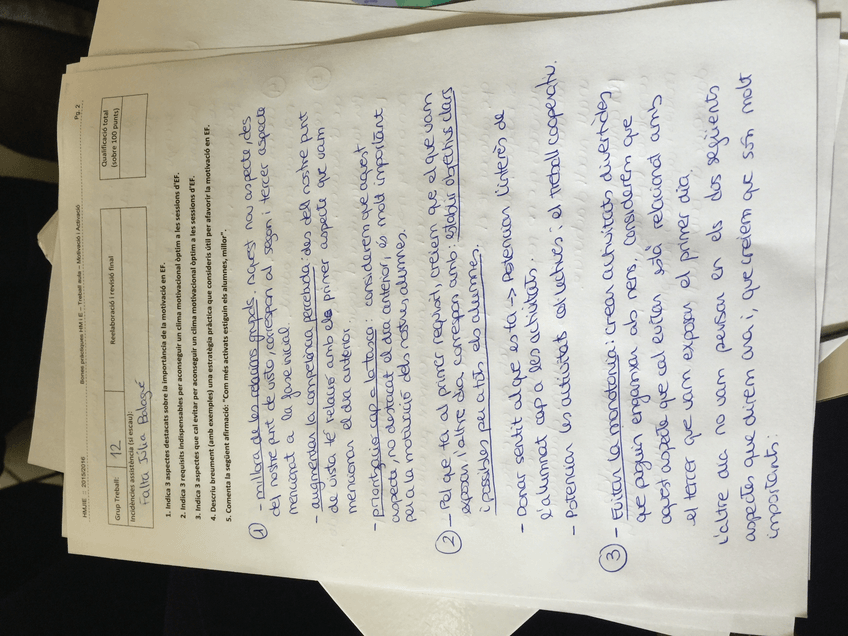 HMiJE – 2015/2016
Bones pràctiques HM i E – Treball aula – Motivació i Activació
Pg. 2
Grup Treball:
12
Reelaboració i revisió final
Qualificació total
(sobre 100 punts)
Incidències assistència (si escau):
Falta Júlia Balagué
1. Indica 3 aspectes destacats sobre la importància de la motivació en EF.
2. Indica 3 requisits indispensables per aconseguir un clima motivacional òptim a les sessions d'EF.
3. Indica 3 aspectes que cal evitar per aconseguir un clima motivacional òptim a les sessions d'EF.
4. Descriu breument (amb exemples) una estratègia pràctica que consideris útil per afavorir la motivació en EF.
5. Comenta la següent afirmació: "Com més activats estiguin els alumnes, millor".
① - millora de les relacions grupals. Aquest nou aspecte, des
del nostre punt de vista, correspon al segon i tercer aspecte
mencionat a la fase inicial.
- augmenten la competència percebuda: des del nostre punt
de vista té relació amb el primer aspecte que vam
mencionar el dia anterior.
- predisposició cap a la tasca: considerem que aquest
aspecte, no destacat el dia anterior, és molt important
per a la motivació dels nostres alumnes.
② - Pel que fa al primer requisit, creiem que el que vam
exposar l'altre dia, correspon amb: establir objectius clars
i possibles per a tots els alumnes.
- Donar sentit al que es fa -> Potenciar l'interès de
l'alumnat cap a les activitats.
- Potenciar les activitats col·lectives i el treball cooperatiu.
③ - Evitar la monotonia: crear activitats divertides
que puguin enganxar als nens, considerem que
aquest aspecte que cal evitar està relacionat amb
el tercer que vam exposar el primer dia.
L'altre dia no vam pensar en els dos següents
aspectes que direm ara i, que creiem que són molt
importants: